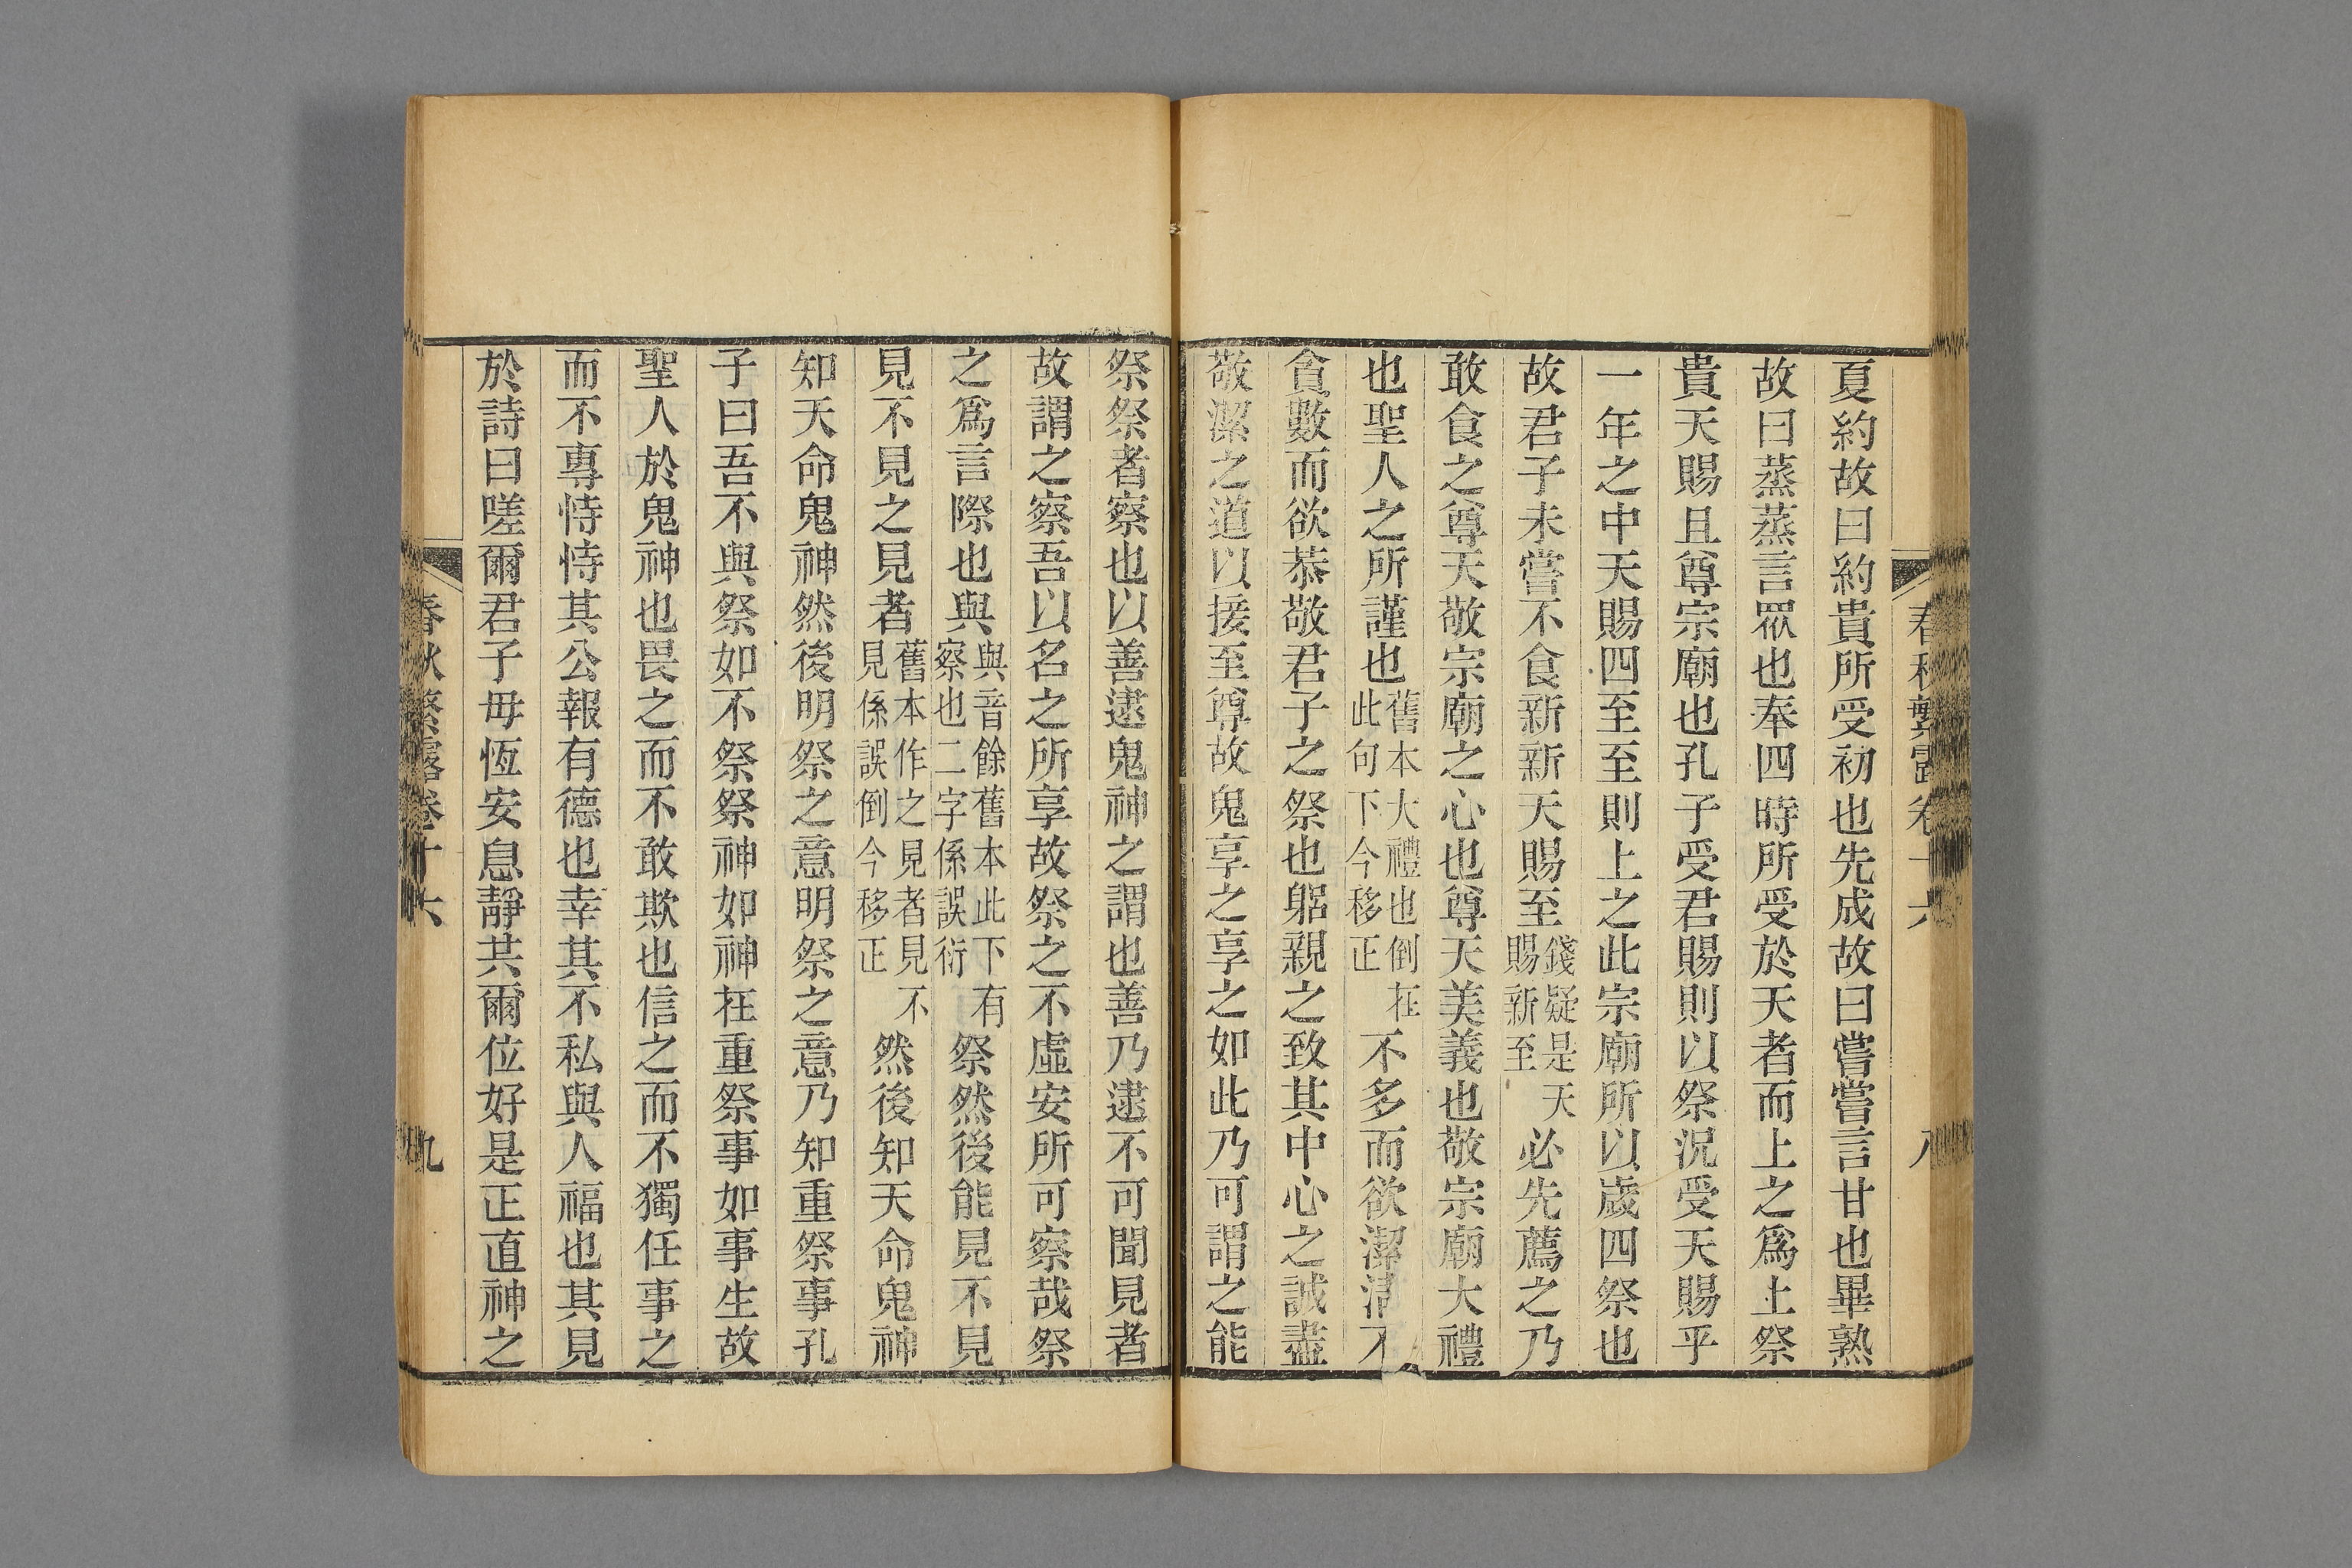 春秋繁露卷十六
八
夏約故曰約貴所受初也先成故曰嘗嘗言甘也畢熟
故曰蒸蒸言眾也奉四時所受於天者而上之爲上祭
貴天賜且尊宗廟也孔子受君賜則以祭況受天賜乎
一年之中天賜四至至則上之此宗廟所以歲四祭也
故君子未嘗不食新新天賜至錢疑是天賜新至必先薦之乃
敢食之尊天敬宗廟之心也尊天美義也敬宗廟大禮
也聖人之所謹也舊本大禮也倒在此句下今移正不多而欲潔清不
貪數而欲恭敬君子之祭也躬親之致其中心之誠盡
敬潔之道以接至尊故鬼享之享之如此乃可謂之能
祭祭者察也以善逮鬼神之謂也善乃逮不可聞見者
故謂之察吾以名之所享故祭之不虛安所可察哉祭
之爲言際也與與音餘舊本此下有察也二字係誤衍祭然後能見不見
見不見之見者舊本作之見者見不見係誤倒今移正然後知天命鬼神
知天命鬼神然後明祭之意明祭之意乃知重祭事孔
子曰吾不與祭如不祭祭神如神在重祭事如事生故
聖人於鬼神也畏之而不敢欺也信之而不獨任事之
而不專恃恃其公報有德也幸其不私與人福也其見
於詩曰嗟爾君子毋恆安息靜共爾位好是正直神之
春秋繁露卷十六
九